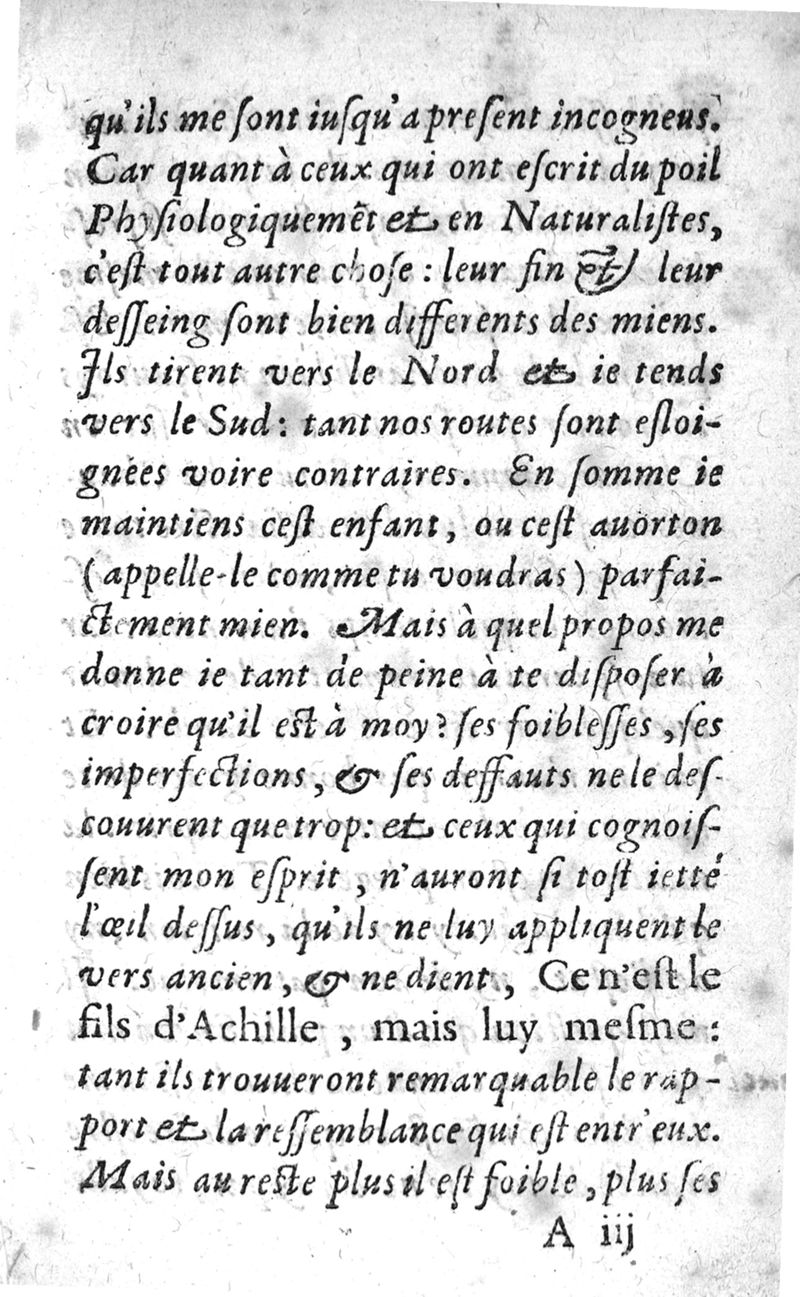 qu'ils me ſont iuſqu'a preſent incogneus.
Car quant à ceux qui ont eſcrit du poil
Phyſiologiquemẽt & en Naturaliſtes,
c'eſt tout autre choſe : leur fin & leur
deſſeing ſont bien differents des miens.
Ils tirent vers le Nord & ie tends
vers le Sud : tant nos routes ſont eſloi-
gnées voire contraires. En ſomme ie
maintiens ceſt enfant, ou ceſt auorton
(appelle-le comme tu voudras) parfai-
ctement mien. Mais à quel propos me
donne ie tant de peine à te diſpoſer à
croire qu'il eſt à moy? ſes foibleſſes, ſes
imperfections, & ſes deffauts ne le deſ-
couurent que trop: & ceux qui cognoiſ-
ſent mon eſprit, n'auront ſi toſt ietté
l'œil deſſus, qu'ils ne luy appliquent le
vers ancien, & ne dient, Ce n'eſt le
fils d'Achille, mais luy meſme :
tant ils trouueront remarquable le rap-
port & la reſſemblance qui eſt entr'eux.
Mais au reſte plus il eſt foible, plus ſes
A iij